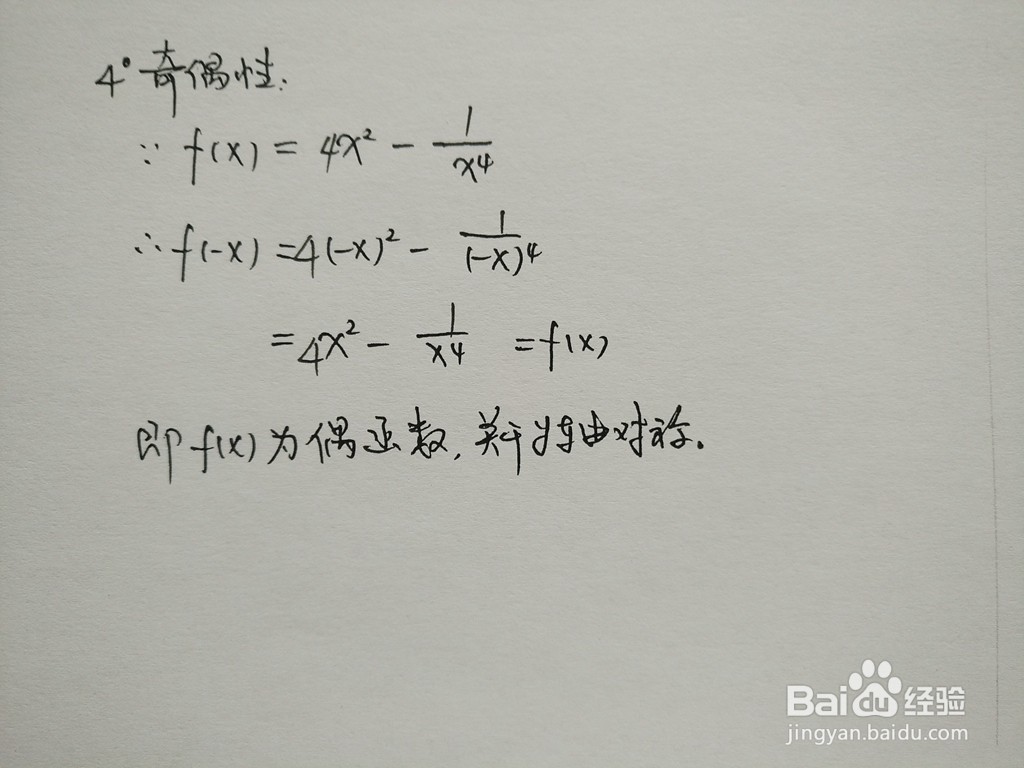 4° 奇偶性.
∵ f(x) = 4x² - 1/x⁴
∴ f(-x) = 4(-x)² - 1/(-x)⁴
= 4x² - 1/x⁴ = f(x)
即 f(x) 为偶函数, 关于y轴对称.
Bai du 经验
jingyan.baidu.com